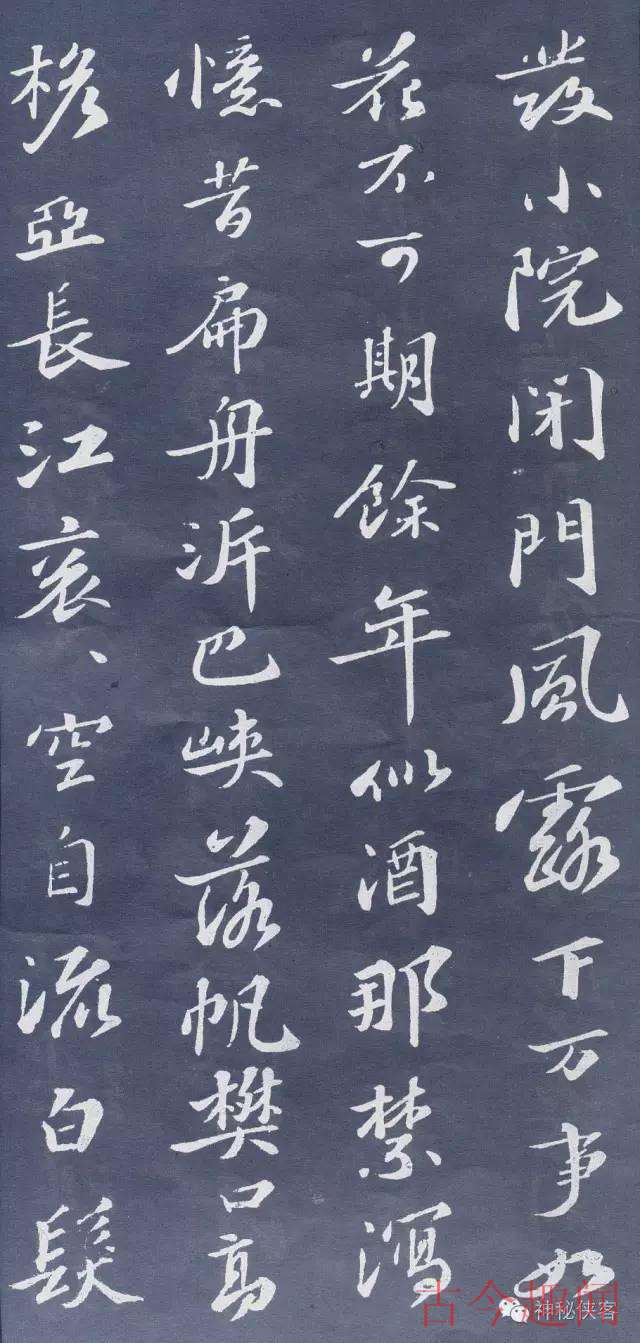 發小院閉門風露下万事如
花不可期餘年似酒那禁瀉
憶昔扁舟泝巴峽落帆樊口高
桅亞長江袞、空自流白髮
古今趣闻
神秘侠客